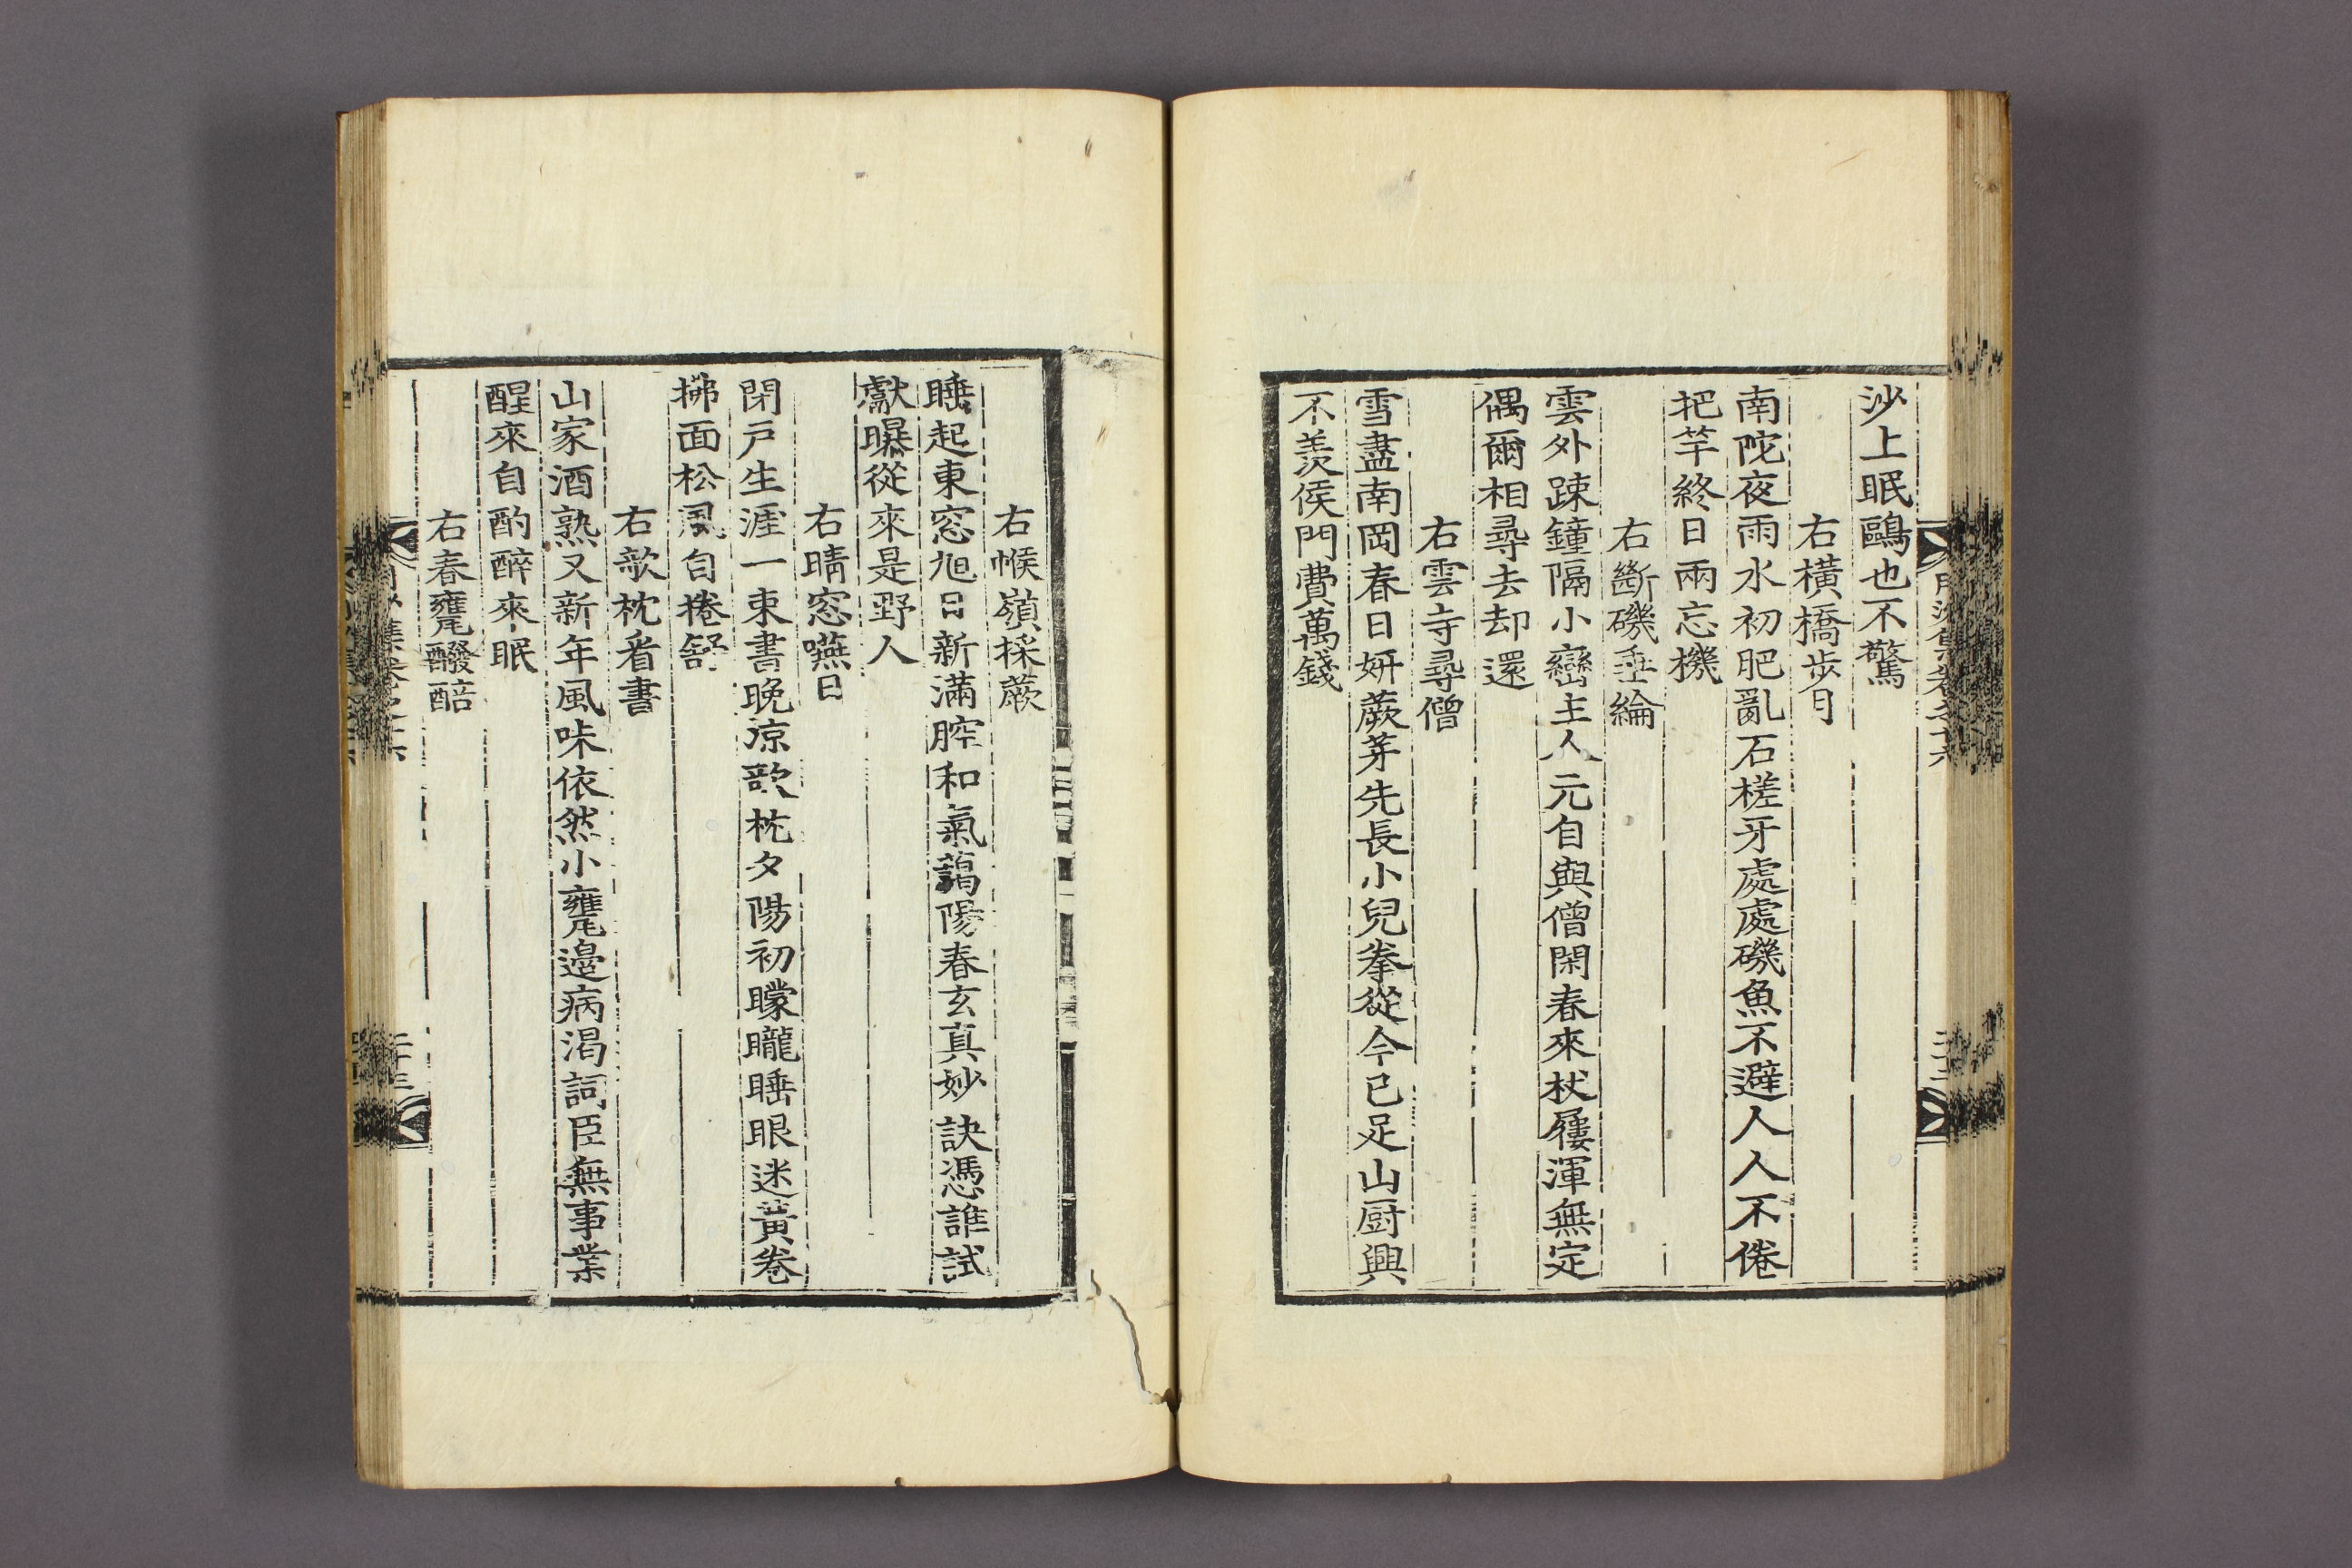 沙上眠鷗也不驚
右橫橋步月
南陀夜雨水初肥亂石槎牙處處磯魚不避人人不倦
把竿終日兩忘機
右斷磯垂綸
雲外踈鐘隔小巒主人元自與僧閑春來杖屨渾無定
偶爾相尋去却還
右雲寺尋僧
雪盡南岡春日姸蕨芽先長小兒拳從今已足山厨興
不羨侯門費萬錢
右帿嶺採蕨
睡起東窓旭日新滿腔和氣藹陽春玄真妙訣憑誰試
獻曝從來是野人
右晴窓嚥日
閉戶生涯一束書晚凉欹枕夕陽初矇矓睡眼迷黃卷
拂面松風自捲舒
右欹枕看書
山家酒熟又新年風味依然小甕邊病渴詞臣無事業
醒來自酌醉來眠
右春甕醱醅
二十三